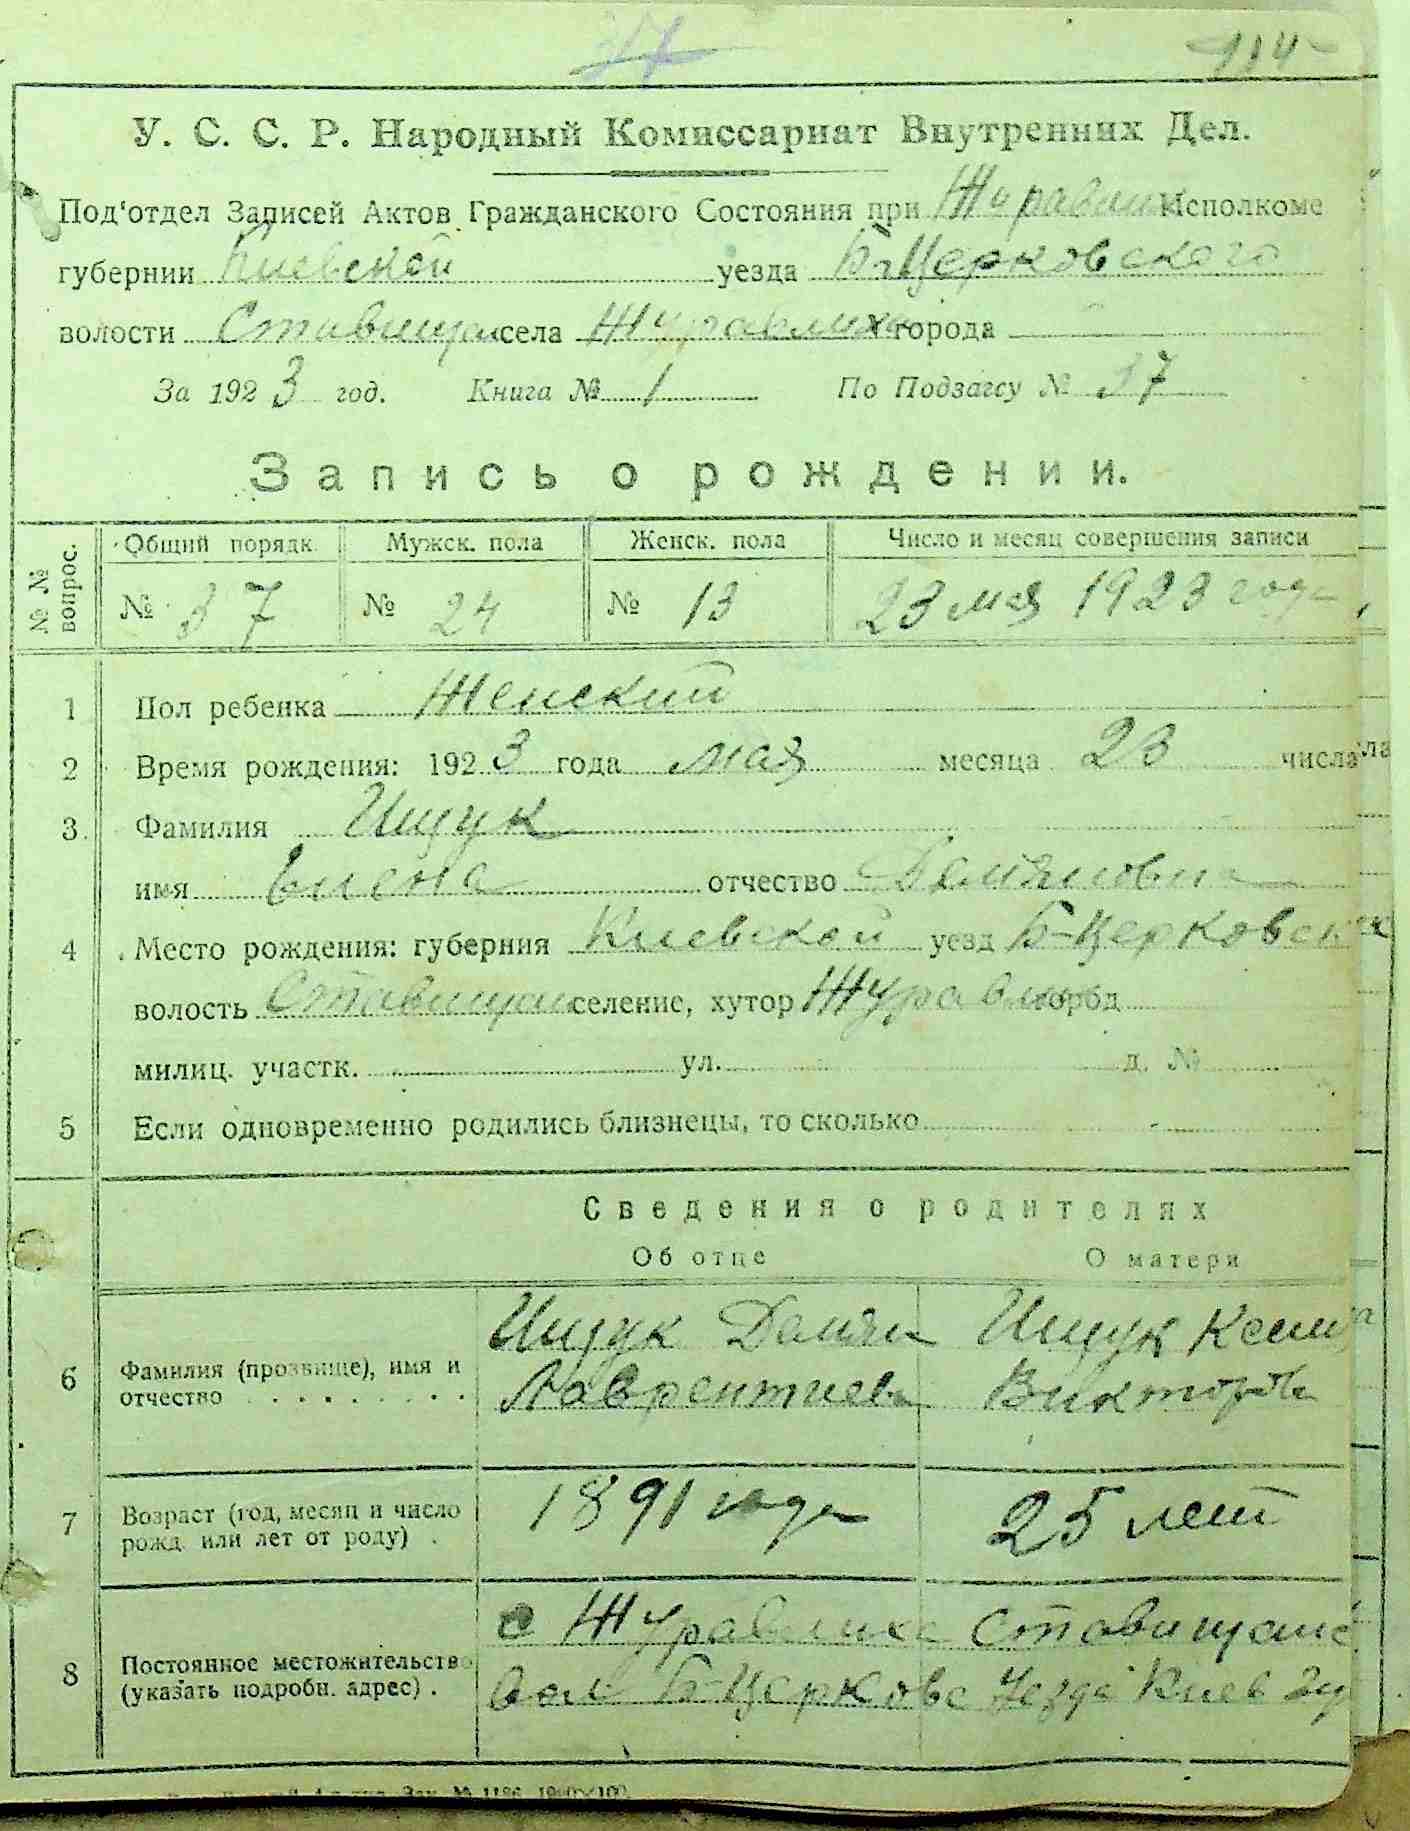 37
114
У. С. С. Р. Народный Комиссариат Внутренних Дел.
Под'отдел Записей Актов Гражданского Состояния при Журавлих Исполкоме
губернии Киевской уезда Б-Церковского
волости Ставищан села Журавлиха города
За 1923 год. Книга № 1 По Подзагсу № 37
Запись о рождении.
№ № вопрос. Общий порядк. Мужск. пола Женск. пола Число и месяц совершения записи
№ 37 № 24 № 13 23 мая 1923 года
1 Пол ребенка Женский
2 Время рождения: 1923 года мая месяца 23 числа
3. Фамилия Ищук
имя Елена отчество Демяновна
4 Место рождения: губерния Киевской уезд Б-Церковск
волость Ставищан селение, хутор Журавлих город
милиц. участк. ул. д. №
5 Если одновременно родились близнецы, то сколько
Сведения о родителях
Об отце О матери
6 Фамилия (прозвище), имя и отчество Ищук Демян Лаврентиев Ищук Викторов
7 Возраст (год, месяц и число рожд. или лет от роду) 1891 года 25 лет
8 Постоянное местожительство (указать подробн. адрес). с Журавлиха Ставищанс
вол Б-Церковс Уезда Киев гу